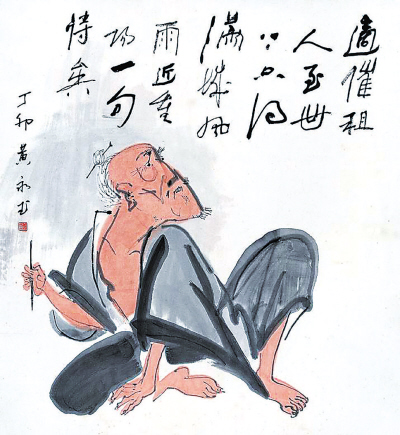 適催租
人至
只得
滿城風
雨近重
陽一句
矣
丁卯 黃永玉